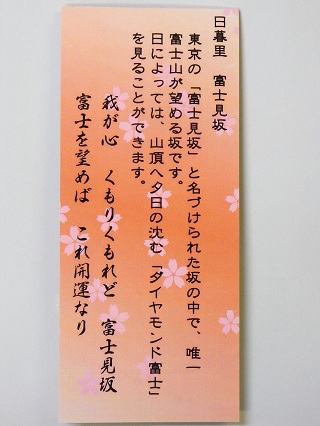 日暮里　富士見坂
東京の「富士見坂」と名づけられた坂の中で、唯一
富士山が望める坂です。
日によっては、山頂へ夕日の沈む「ダイヤモンド富士」
を見ることができます。
我が心　くもりくもれど　富士見坂
富士を望めば　これ開運なり